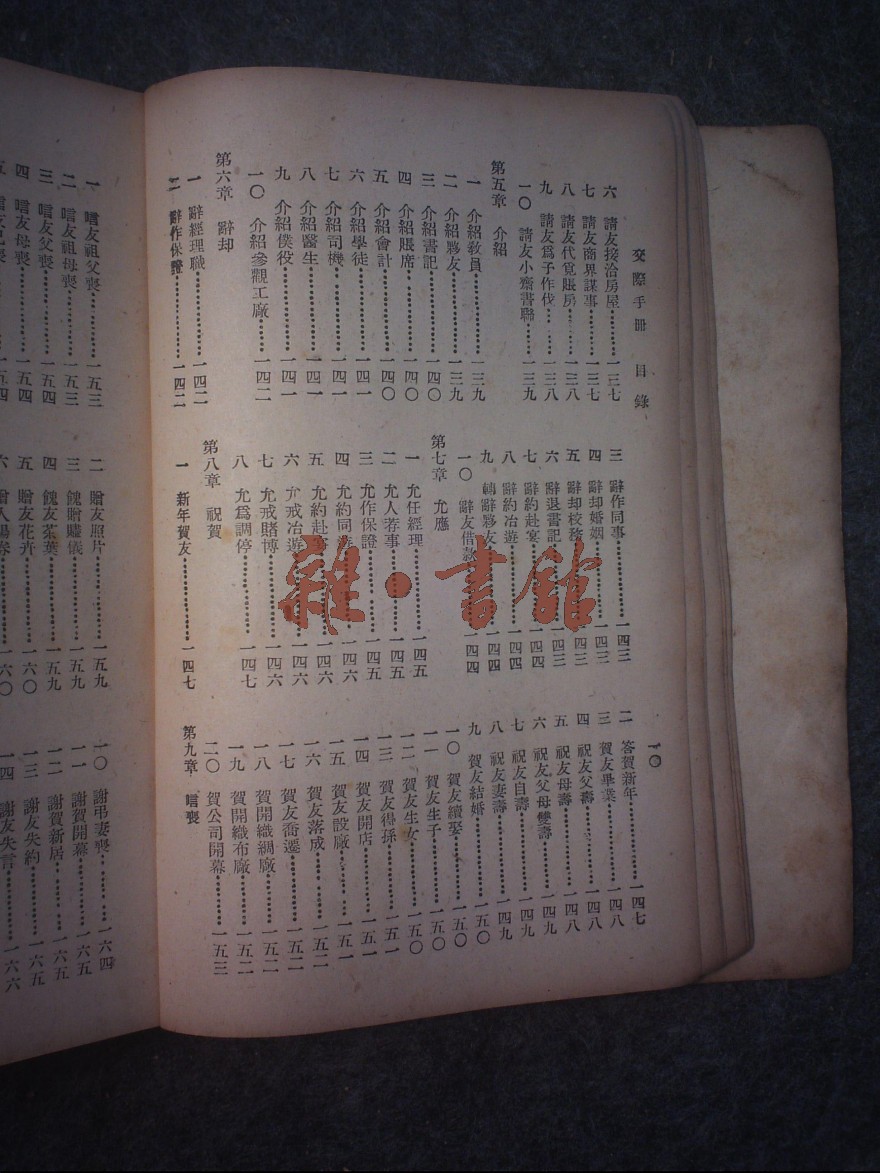 交際手冊 目錄
一〇
六 請友接洽房屋 一三七
七 請友商界謀事 一三七
八 請友代覓賬房 一三八
九 請友爲子作伐 一三八
一〇 請友小齋書聯 一三九
第五章 介紹
一 介紹敎員 一三九
二 介紹夥友 一三九
三 介紹書記 一四〇
四 介紹賬席 一四〇
五 介紹會計 一四〇
六 介紹學徒 一四一
七 介紹司機 一四一
八 介紹醫生 一四一
九 介紹僕役 一四一
一〇 介紹參觀工廠 一四二
第六章 辭却
一 辭經理職 一四二
二 辭作保證 一四二
三 辭作同事 一四三
四 辭却婚姻 一四三
五 辭却校務 一四三
六 辭退書記 一四三
七 辭約赴宴 一四四
八 辭約冶遊 一四四
九 轉辭夥友 一四四
一〇 辭友借款 一四四
第七章 允應
一 允任經理 一四五
二 允人荐事 一四五
三 允作保證 一四五
四 允約同遊 一四六
五 允約赴宴 一四六
六 允戒冶遊 一四六
七 允戒賭博 一四六
八 允爲調停 一四七
第八章 祝賀
一 新年賀友 一四七
二 答賀新年 一四七
三 賀友畢業 一四八
四 祝友父壽 一四八
五 祝友母壽 一四八
六 祝友父母雙壽 一四九
七 祝友自壽 一四九
八 祝友妻壽 一四九
九 賀友結婚 一五〇
一〇 賀友續娶 一五〇
一一 賀友生子 一五〇
一二 賀友生女 一五〇
一三 賀友得孫 一五一
一四 賀友開店 一五一
一五 賀友設廠 一五一
一六 賀友落成 一五二
一七 賀友喬遷 一五二
一八 賀開織綢廠 一五二
一九 賀開織布廠 一五二
二〇 賀公司開幕 一五三
第九章 唁喪
一 唁友祖父喪 一五三
二 唁友祖母喪 一五三
三 唁友父喪 一五四
四 唁友母喪 一五四
二 贈友照片 一五九
三 餽贈贐儀 一五九
四 餽友茶葉 一五九
五 贈友花卉 一六〇
一〇 謝弔妻喪 一六四
一一 謝賀開幕 一六五
一二 謝賀新居 一六五
一三 謝友失約 一六五
一四 謝友失言 一六六
雜·書館